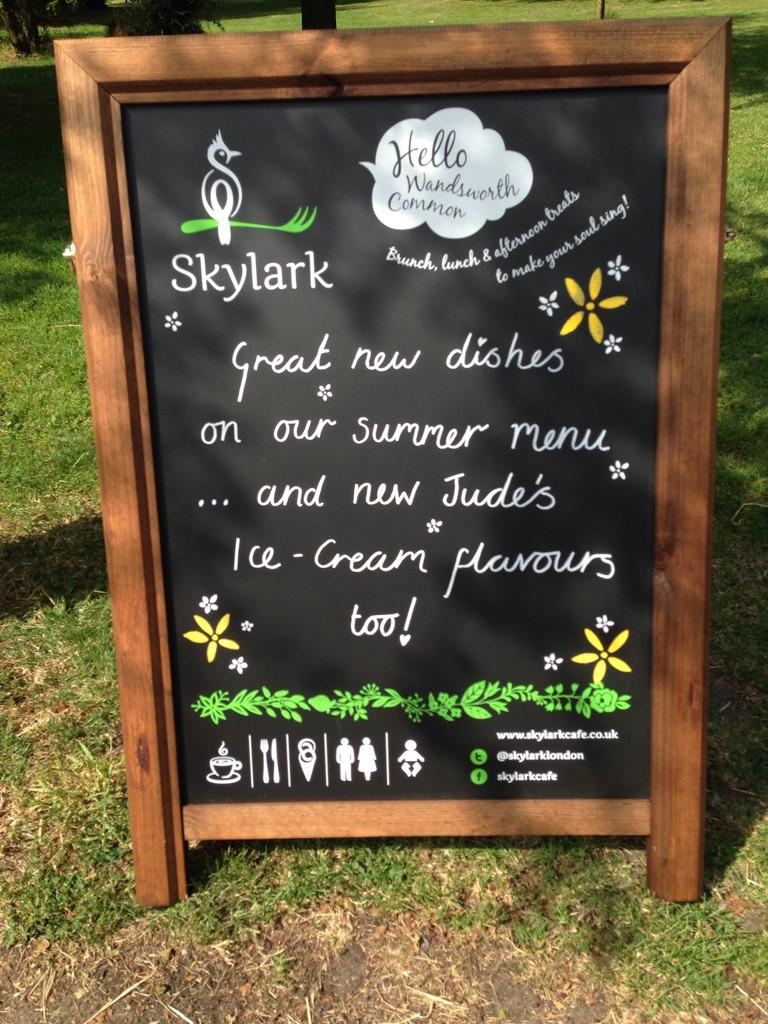 Skylark
Hello
Wandsworth
Common
Brunch, lunch & afternoon treats
to make your soul sing!
Great new dishes
on our summer menu
... and new Jude's
Ice-Cream flavours
too!
www.skylarkcafe.co.uk
@skylarklondon
skylarkcafe